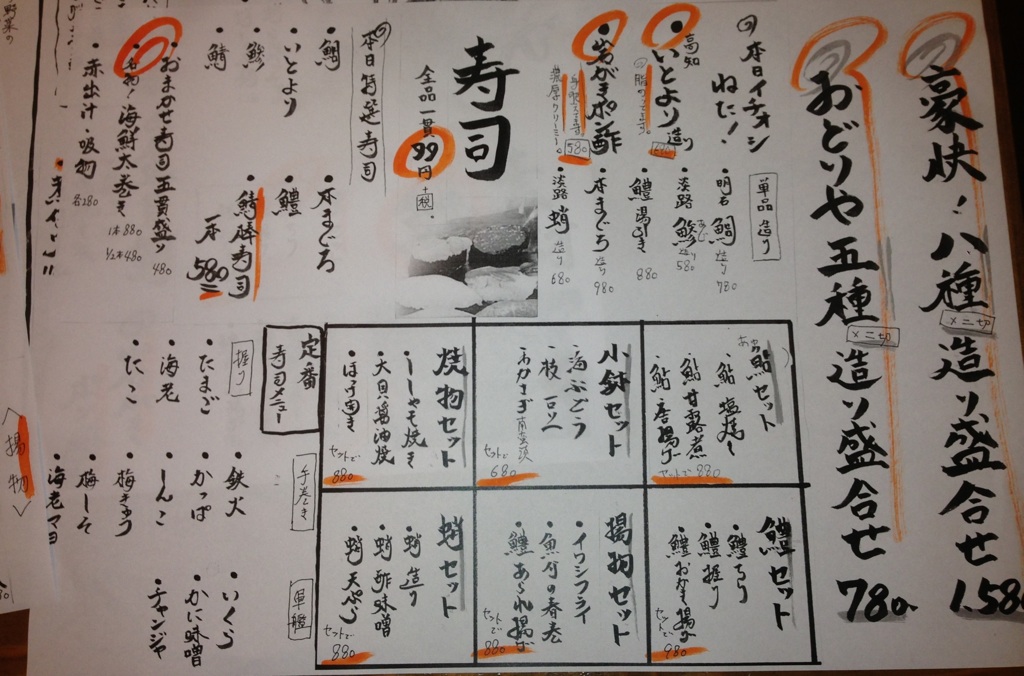 豪快！八種造り盛合せ 1.580
×二切
おどりや五種造り盛合せ 780
×二切
本日イチオシ
ねた！
単品 造り
高知
いとより 造り
岩がきポン酢
手堅てます
濃厚クリーミー。
580
明石 鯛 造り 780
淡路 鯵 造り 580
あじ
鱧 湯引き 880
本まぐろ 造り 980
淡路 蛸 造り 680
寿司
全品一貫99円+税
本日特選寿司
鯛
いとより
鯵
鯖
本まぐろ
鱧
鯖勝寿司
一本 580
おまかせ寿司五貫盛り 480
名物！海鮮太巻き
1本 880
1/2本 480
赤出汁・吸物 各180
鮎セット
鮎 塩焼き
鮎 甘露煮
鮎 唐揚げ
セットで 880
小鉢セット
海ぶどう
枝豆
セットで 680
焼物セット
ししゃも焼き
大貝醤油焼
セットで 880
鱧セット
鱧ちり
鱧握り
鱧おかき揚げ
セットで 980
揚物セット
イワシフライ
魚介の春巻
鱧あられ揚げ
セットで 880
蛸セット
蛸 造り
蛸 酢味噌
蛸 天ぷら
セットで 880
定番
寿司メニュー
握り
たまご
海老
たこ
手巻き
鉄火
かっぱ
しんこ
梅きゅう
梅しそ
海老マヨ
軍艦
いくら
かに味噌
チャンジャ
野菜の
揚物